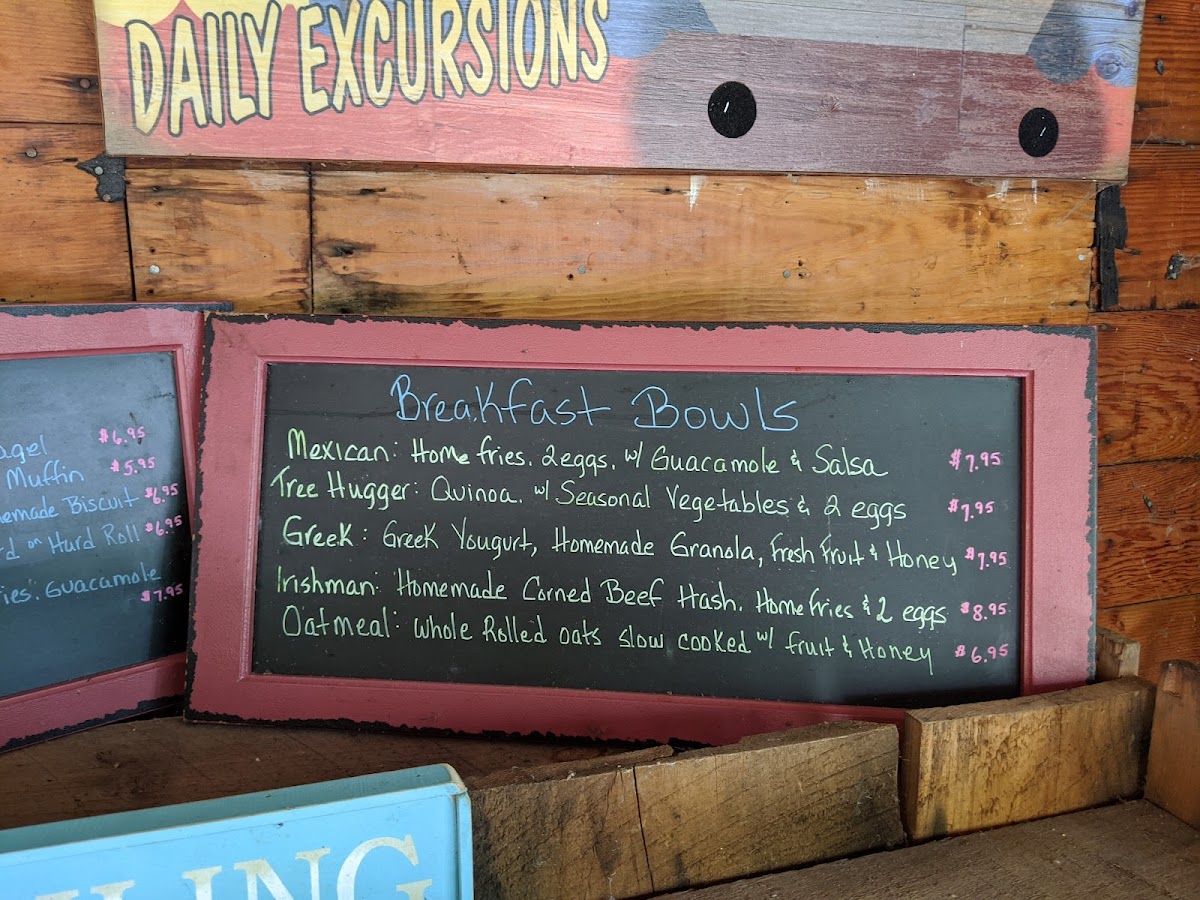 DAILY EXCURSIONS
$6.95
Muffin $5.95
Biscuit $6.95
on Hard Roll $6.95
Guacamole
$7.95
Breakfast Bowls
Mexican: Home fries. 2 eggs. w/ Guacamole & Salsa $7.95
Tree Hugger: Quinoa. w/ Seasonal Vegetables & 2 eggs $7.95
Greek: Greek Yougurt, Homemade Granola, Fresh Fruit & Honey $7.95
Irishman: Homemade Corned Beef Hash. Home fries & 2 eggs $8.95
Oatmeal: Whole Rolled oats slow cooked w/ fruit & Honey $6.95
LING